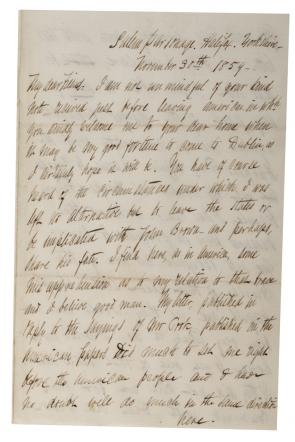 Salem Parsonage, Halifax, Yorkshire
November 30th 1859.
My dear friend. I am not unmindful of your kind
note received just before leaving American in which
you kindly welcome me to your dear home when
it may be my good fortune to come to Dublin, as
I sincerely hope it will be. You have of course
heard of the circumstances under which I was
left no alternative but to leave the States or
be implicated with John Brown and perhaps,
share his fate. I find here, as in America, some
misapprehension as to my relation to that brave
and I believe good man. My letter, published in
reply to the sayings of Mr Cook, published in the
American papers did much to set me right
before the American people and I have
no doubt will do much in the same direction
here.